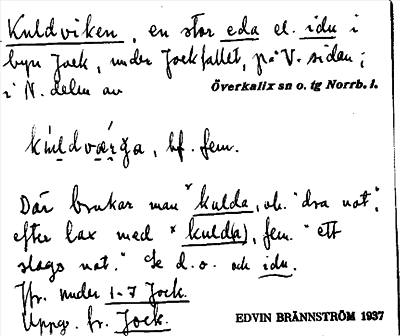 Kuldviken, en stor eda el. idu i
byn Jock, under Jockfallet, på V. sidan;
i N. delen av
Överkalix sn o. tg Norrb. l.
kuldværga, bf. fem.
Där brukar man kulda, ok. "dra not",
efter lax med kuld(a), fem. "ett
slags not." Se d.o. och idu.
Jfr. under 1-7 Jock.
Uppg. fr. Jock.
EDVIN BRÄNNSTRÖM 1937